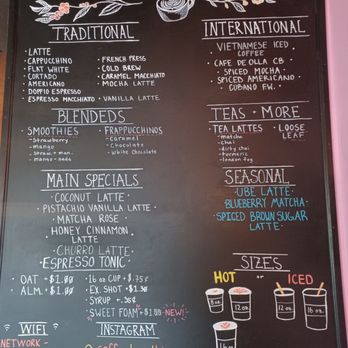 TRADITIONAL
· LATTE
· CAPPUCCINO
· FLAT WHITE
· CORTADO
· AMERICANO
· DOPPIO ESPRESSO
· ESPRESSO MACCHIATO
· FRENCH PRESS
· COLD BREW
· CARAMEL MACCHIATO
· MOCHA LATTE
· VANILLA LATTE
INTERNATIONAL
VIETNAMESE ICED
COFFEE
· CAFE DE OLLA CB ·
· SPICED MOCHA ·
· SPICED AMERICANO ·
CUBANO FW.
BLENDEDS
· SMOOTHIES
- Strawberry
- mango
- mango - nada
· FRAPPUCCINOS
· Caramel
· Chocolate
· White Chocolate
TEAS + MORE
· TEA LATTES
- matcha
- chai
- dirty chai
- turmeric
- london fog
· LOOSE
LEAF
MAIN SPECIALS
COCONUT LATTE
· PISTACHIO VANILLA LATTE ·
MATCHA ROSE ·
HONEY CINNAMON
LATTE
· CHURRO LATTE
ESPRESSO TONIC ·
SEASONAL
· UBE LATTE ·
BLUEBERRY MATCHA ·
SPICED BROWN SUGAR
LATTE ·
OAT + $1.00
ALM. + $1.00
· 16 oz CUP + $.75¢
· EX. SHOT + $1.50
SYRUP + .50¢
SWEET FOAM + $1.00 NEW!
SIZES
HOT or ICED
8 oz
12 oz.
16 oz.
12 oz.
16 oz.
WIFI
NETWORK -
INSTAGRAM